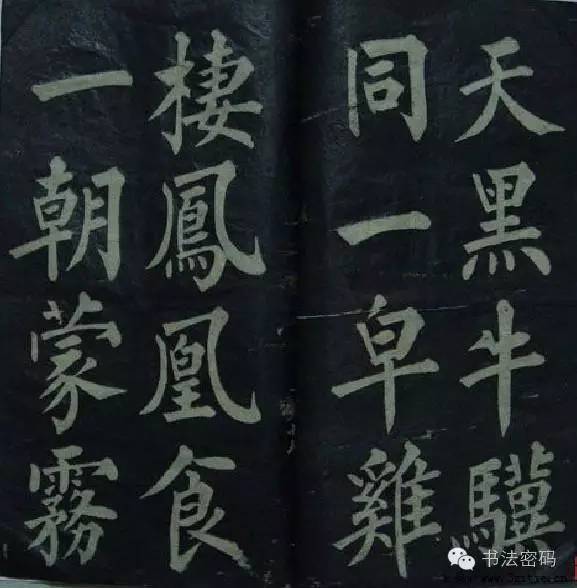 天黑牛驥
同一皁雞
棲鳳凰食
一朝蒙霧
书法密码